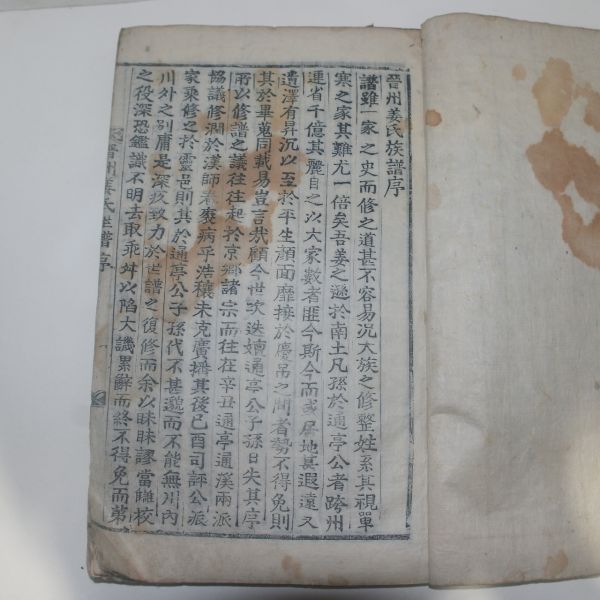 晉州姜氏族譜序
譜雖一家之史而修之道甚不容易況大族之修整姓系其視單
寒之家其難尤一倍矣吾姜之遜於南土凡孫於通亭公者跨州
連省千億其麗自之以大家數者匪今斯今而或居地甚遐遠又
遺澤有昇沉以至於平生顔面靡接於慶吊之間者勢不得免則
其於畢蒐同載易豈言哉顧今世次迭嬗通亭公子孫日失其序
所以修譜之議往往起於京鄉諸宗而往在辛丑通亭通溪兩派
協議修潤於漢師春廢病乎浩穰未克廣播其後己酉司評公派
家乘修之於靈邑則其於通亭公子孫代不甚邈而不能無川內
川外之別庸是深疚致力於世譜之復修而余以昧昧謬當讎校
之役深恐鑑識不明去取乖舛以陷大譏累辭而終不得免而第
晉州姜氏世譜序